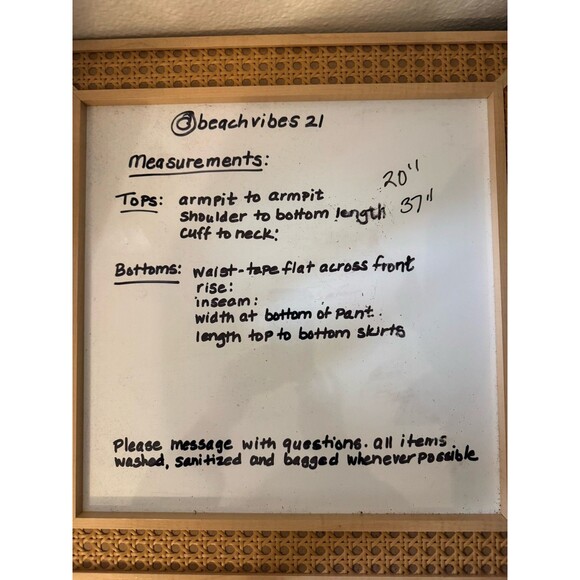 @beachvibes 21
Measurements:
Tops: armpit to armpit 20"
shoulder to bottom length 37"
cuff to neck:
Bottoms: waist-tape flat across front
rise:
inseam:
width at bottom of pant.
length top to bottom skirts
Please message with questions. all items
washed, sanitized and bagged whenever possible